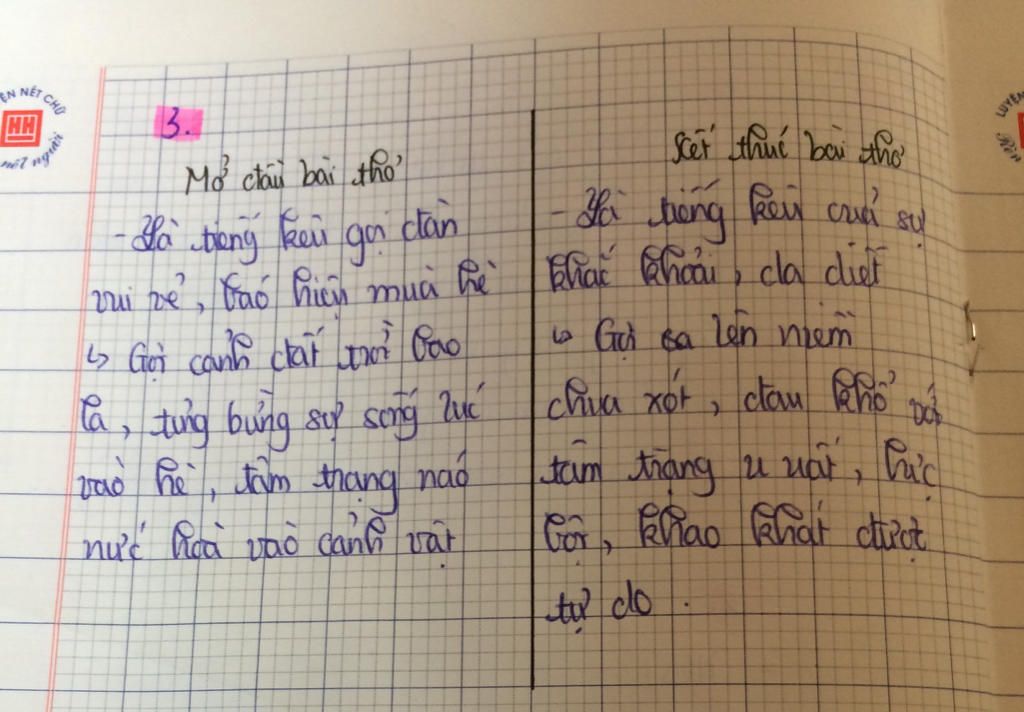 ỆN NẾT CHỮ
HH
nết người
LUYỆN
Rèn
3.
Mở đầu bài thơ
- Là tiếng kêu gọi đàn
vui vẻ, báo hiệu mùa hè
↳ Gợi cảnh đất trời bao
la, tưng bừng sự sống lúc
vào hè, tâm trạng náo
nức hoà vào cảnh vật
Kết thúc bài thơ
- Là tiếng kêu của sự
khắc khoải, da diết
↳ Gợi ra lên niềm
chua xót, đau khổ với
tâm trạng u uất, bực
bội, khao khát được
tự do.